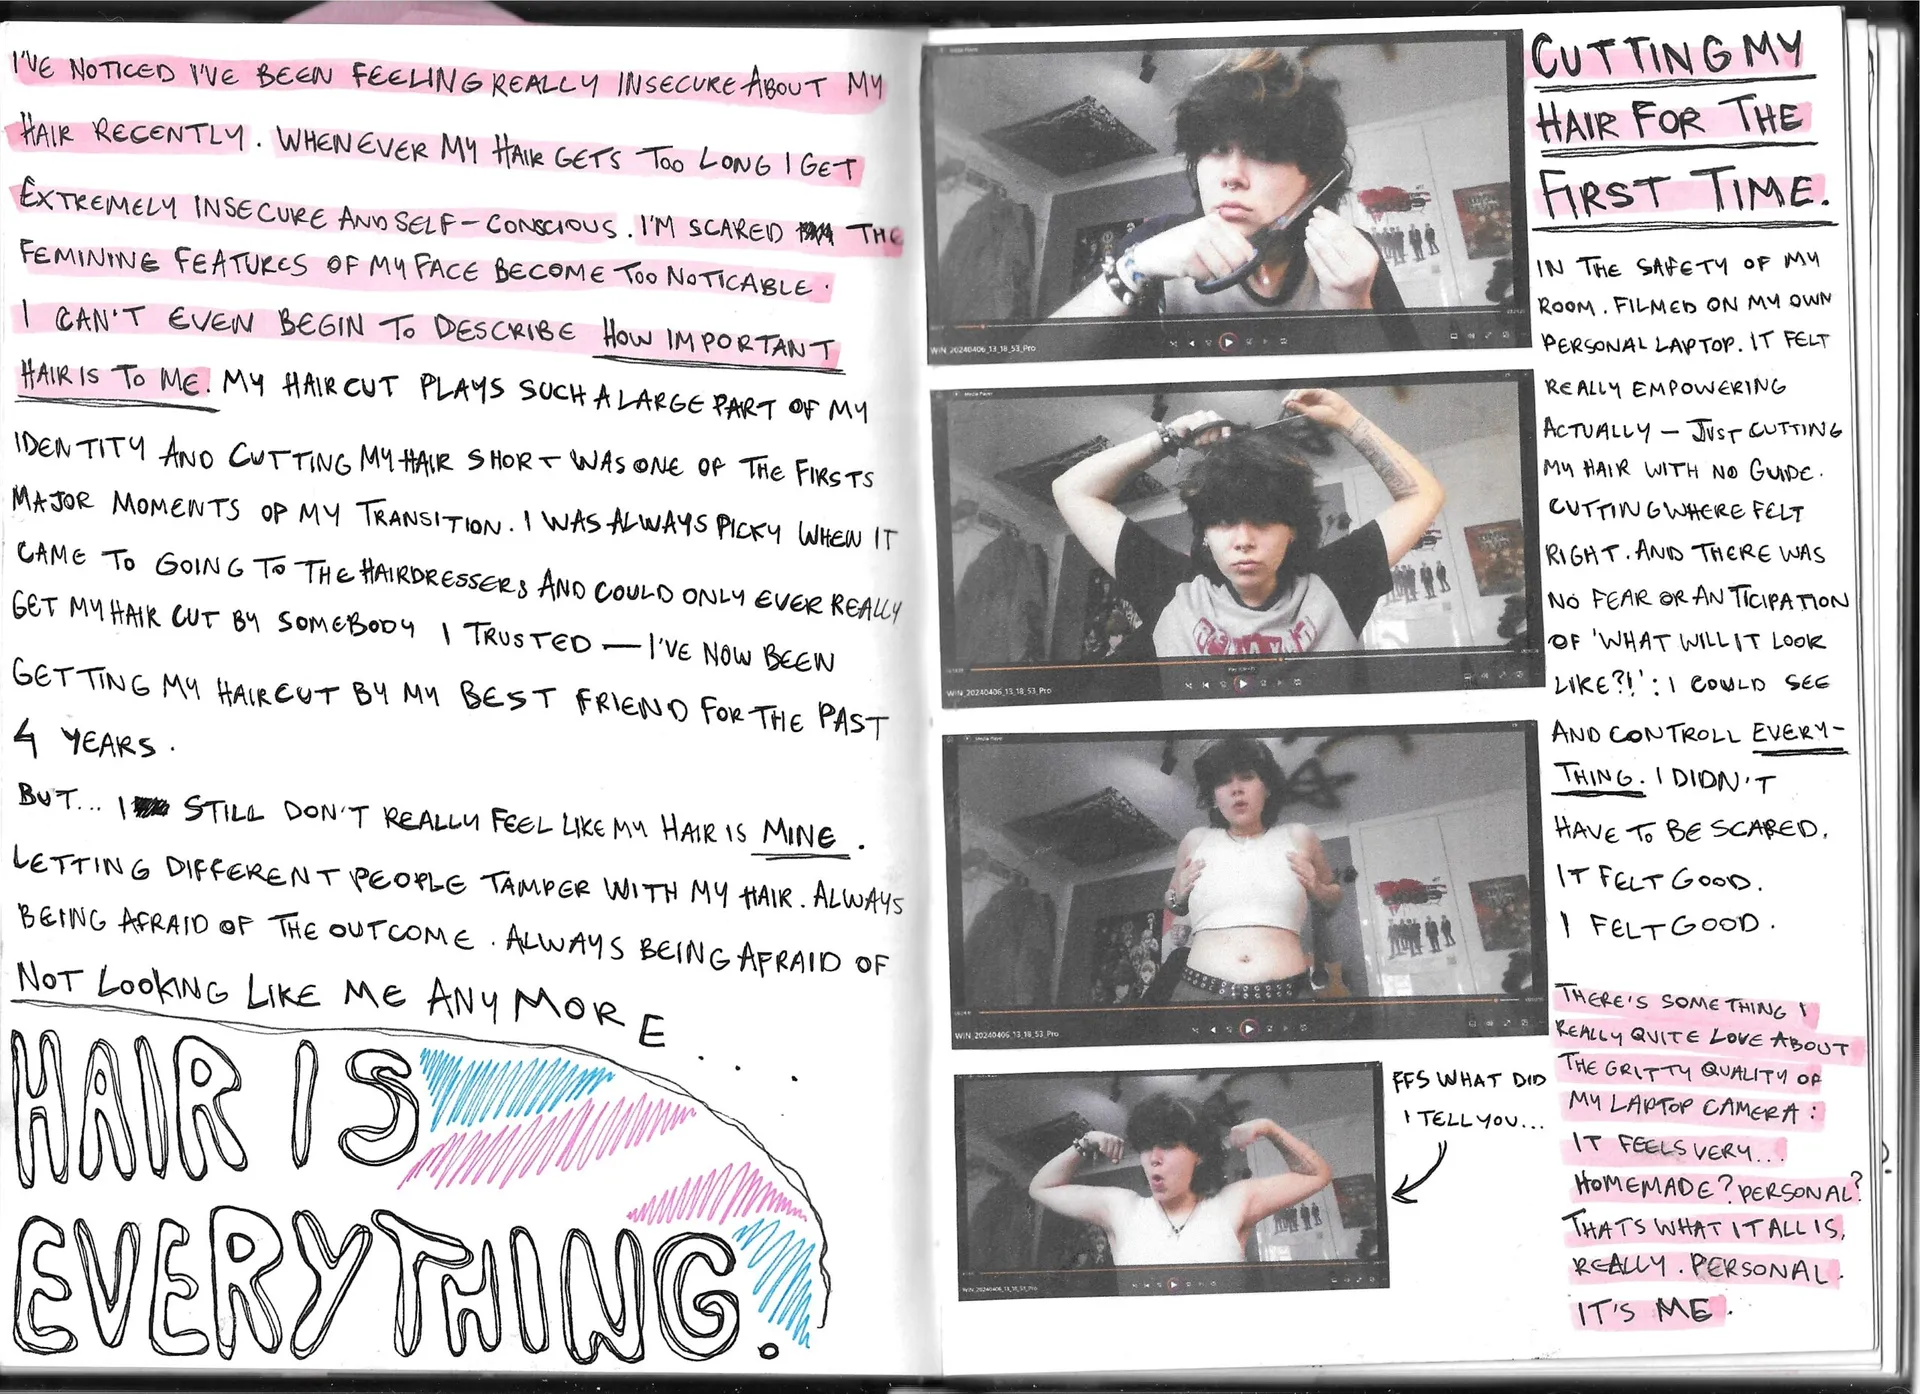 I'VE NOTICED I'VE BEEN FEELING REALLY INSECURE ABOUT MY
HAIR RECENTLY. WHENEVER MY HAIR GETS TOO LONG I GET
EXTREMELY INSECURE AND SELF-CONSCIOUS. I'M SCARED THE
FEMININE FEATURES OF MY FACE BECOME TOO NOTICABLE.
I CAN'T EVEN BEGIN TO DESCRIBE HOW IMPORTANT
HAIR IS TO ME. MY HAIRCUT PLAYS SUCH A LARGE PART OF MY
IDENTITY AND CUTTING MY HAIR SHORT WAS ONE OF THE FIRSTS
MAJOR MOMENTS OF MY TRANSITION. I WAS ALWAYS PICKY WHEN IT
CAME TO GOING TO THE HAIRDRESSERS AND COULD ONLY EVER REALLY
GET MY HAIR CUT BY SOMEBODY I TRUSTED — I'VE NOW BEEN
GETTING MY HAIRCUT BY MY BEST FRIEND FOR THE PAST
4 YEARS.
BUT... I STILL DON'T REALLY FEEL LIKE MY HAIR IS MINE.
LETTING DIFFERENT PEOPLE TAMPER WITH MY HAIR. ALWAYS
BEING AFRAID OF THE OUTCOME. ALWAYS BEING AFRAID OF
NOT LOOKING LIKE ME ANYMORE...
HAIR IS
EVERYTHING.
Media Player
WIN_20240406_13_18_53_Pro
Media Player
WIN_20240406_13_18_53_Pro
Media Player
WIN_20240406_13_18_53_Pro
WIN_20240406_13_18_53_Pro
FFS WHAT DID
I TELL YOU...
CUTTING MY
HAIR FOR THE
FIRST TIME.
IN THE SAFETY OF MY
ROOM. FILMED ON MY OWN
PERSONAL LAPTOP. IT FELT
REALLY EMPOWERING
ACTUALLY — JUST CUTTING
MY HAIR WITH NO GUIDE.
CUTTING WHERE FELT
RIGHT. AND THERE WAS
NO FEAR OR ANTICIPATION
OF 'WHAT WILL IT LOOK
LIKE?!': I COULD SEE
AND CONTROLL EVERY-
THING. I DIDN'T
HAVE TO BE SCARED.
IT FELT GOOD.
I FELT GOOD.
THERE'S SOMETHING I
REALLY QUITE LOVE ABOUT
THE GRITTY QUALITY OF
MY LAPTOP CAMERA:
IT FEELS VERY...
HOMEMADE? PERSONAL?
THATS WHAT IT ALL IS,
REALLY. PERSONAL.
IT'S ME.